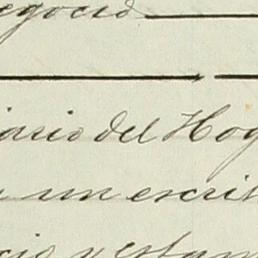 egocio
iario del Hog
un escrit
cio y estam